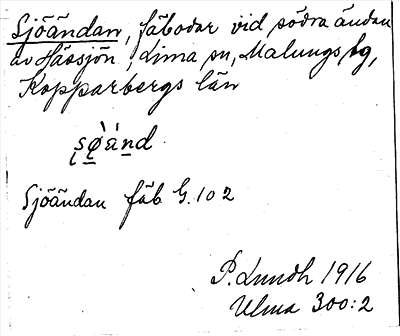 Sjöändan, fäbodar vid södra ändan
av Hässjön, Lima sn, Malungs tg,
Kopparbergs län
Sjöändan fäb G. 102
P. Lundh 1916
Ulma 300:2